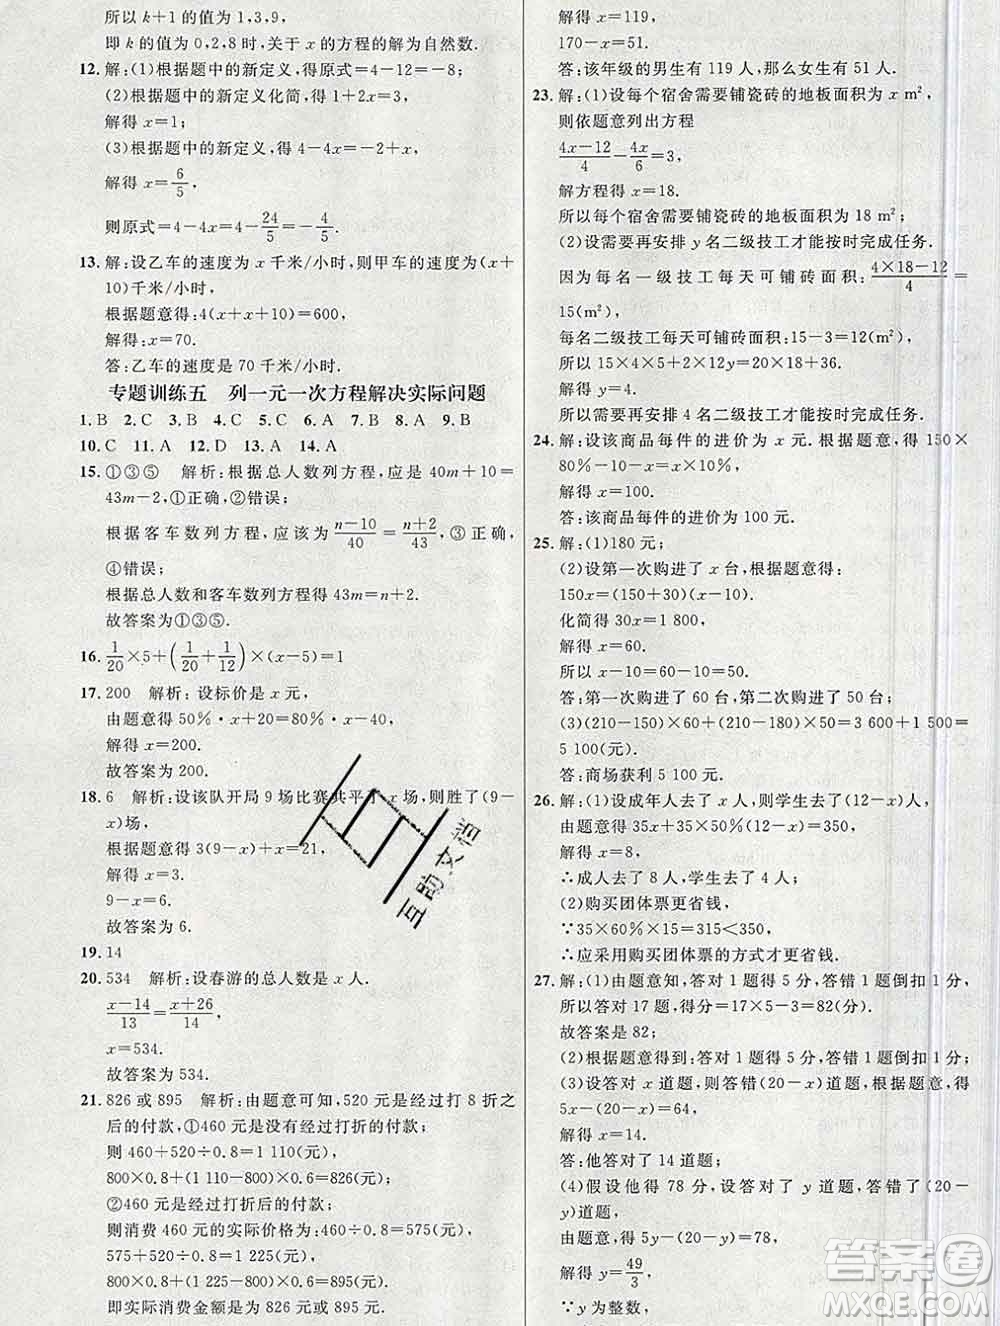 所以 k+1 的值为 1,3,9,
即 k 的值为 0,2,8 时,关于 x 的方程的解为自然数.
12. 解:(1)根据题中的新定义,得原式=4-12=-8;
(2)根据题中的新定义化简,得 1+2x=3,
解得 x=1;
(3)根据题中的新定义,得 4-4x=-2+x,
解得 x=6/5,
则原式=4-4x=4-24/5=-4/5.
13. 解:设乙车的速度为 x 千米/小时,则甲车的速度为(x+
10)千米/小时,
根据题意得:4(x+x+10)=600,
解得:x=70.
答:乙车的速度是 70 千米/小时.
专题训练五 列一元一次方程解决实际问题
1. B 2. C 3. C 4. C 5. C 6. A 7. A 8. A 9. B
10. C 11. A 12. D 13. A 14. A
15. ①③⑤ 解析:根据总人数列方程,应是 40m+10=
43m-2,①正确,②错误;
根据客车数列方程,应该为 (n-10)/40=(n+2)/43,③正确,
④错误;
根据总人数和客车数列方程得 43m=n+2.
故答案为①③⑤.
16. 1/20×5+(1/20+1/12)×(x-5)=1
17. 200 解析:设标价是 x 元.
由题意得 50%·x+20=80%·x-40,
解得 x=200.
故答案为 200.
18. 6 解析:设该队开局 9 场比赛共平了 x 场,则胜了(9-
x)场,
根据题意得 3(9-x)+x=21,
解得:x=3.
9-x=6.
故答案为 6.
19. 14
20. 534 解析:设春游的总人数是 x 人.
(x-14)/13=(x+26)/14,
x=534.
故答案为 534.
21. 826 或 895 解析:由题意可知,520 元是经过打 8 折之
后的付款,①460 元是没有经过打折的付款,
则 460+520÷0.8=1 110(元),
800×0.8+(1 110-800)×0.6=826(元);
②460 元是经过打折后的付款,
则消费 460 元的实际价格为:460÷0.8=575(元),
575+520÷0.8=1 225(元),
800×0.8+(1 225-800)×0.6=895(元),
即实际消费金额是为 826 元或 895 元.
解得 x=119,
170-x=51.
答:该年级的男生有 119 人,那么女生有 51 人.
23. 解:(1)设每个宿舍需要铺瓷砖的地板面积为 x m²,
则依题意列出方程
(4x-12)/4-4x/6=3,
解方程得 x=18.
所以每个宿舍需要铺瓷砖的地板面积为 18 m²;
(2)设需要再安排 y 名二级技工才能按时完成任务.
因为每名一级技工每天可铺砖面积:(4×18-12)/4=
15(m²),
每名二级技工每天可铺砖面积:15-3=12(m²),
所以 15×4×5+2×12y=20×18+36.
解得 y=4.
所以需要再安排 4 名二级技工才能按时完成任务.
24. 解:设该商品每件的进价为 x 元.根据题意,得 150×
80%-x=x×10%,
解得 x=100.
答:该商品每件的进价为 100 元.
25. 解:(1)180 元;
(2)设第一次购进了 x 台,根据题意得:
150x=(150+30)(x-10)
化简得 30x=1 800,
解得 x=60.
所以 x-10=60-10=50.
答:第一次购进了 60 台,第二次购进了 50 台;
(3)(210-150)×60+(210-180)×50=3 600+1 500=
5 100(元).
答:商场获利 5 100 元.
26. 解:(1)设成年人去了 x 人,则学生去了(12-x)人,
由题意得 35x+35×50%(12-x)=350,
解得 x=8,
∴成人去了 8 人,学生去了 4 人;
(2)购买团体票更省钱,
∵35×60%×15=315<350,
∴应采用购买团体票的方式才更省钱.
27. 解:(1)由题意知,答对 1 题得 5 分,答错 1 题倒扣 1 分,
所以答对 17 题,得分=17×5-3=82(分),
故答案是 82;
(2)根据题意得到:答对 1 题得 5 分,答错 1 题倒扣 1 分;
(3)设答对 x 道题,则答错(20-x)道题,根据题意,得
5x-(20-x)=64,
解得 x=14.
答:他答对了 14 道题;
(4)假设他得 78 分,设答对了 y 道题,答错了(20-
y)道题,
由题意,得 5y-(20-y)=78,
解得 y=49/3,
∵y 为整数,
互助文档
答案圈
MXQE.COM